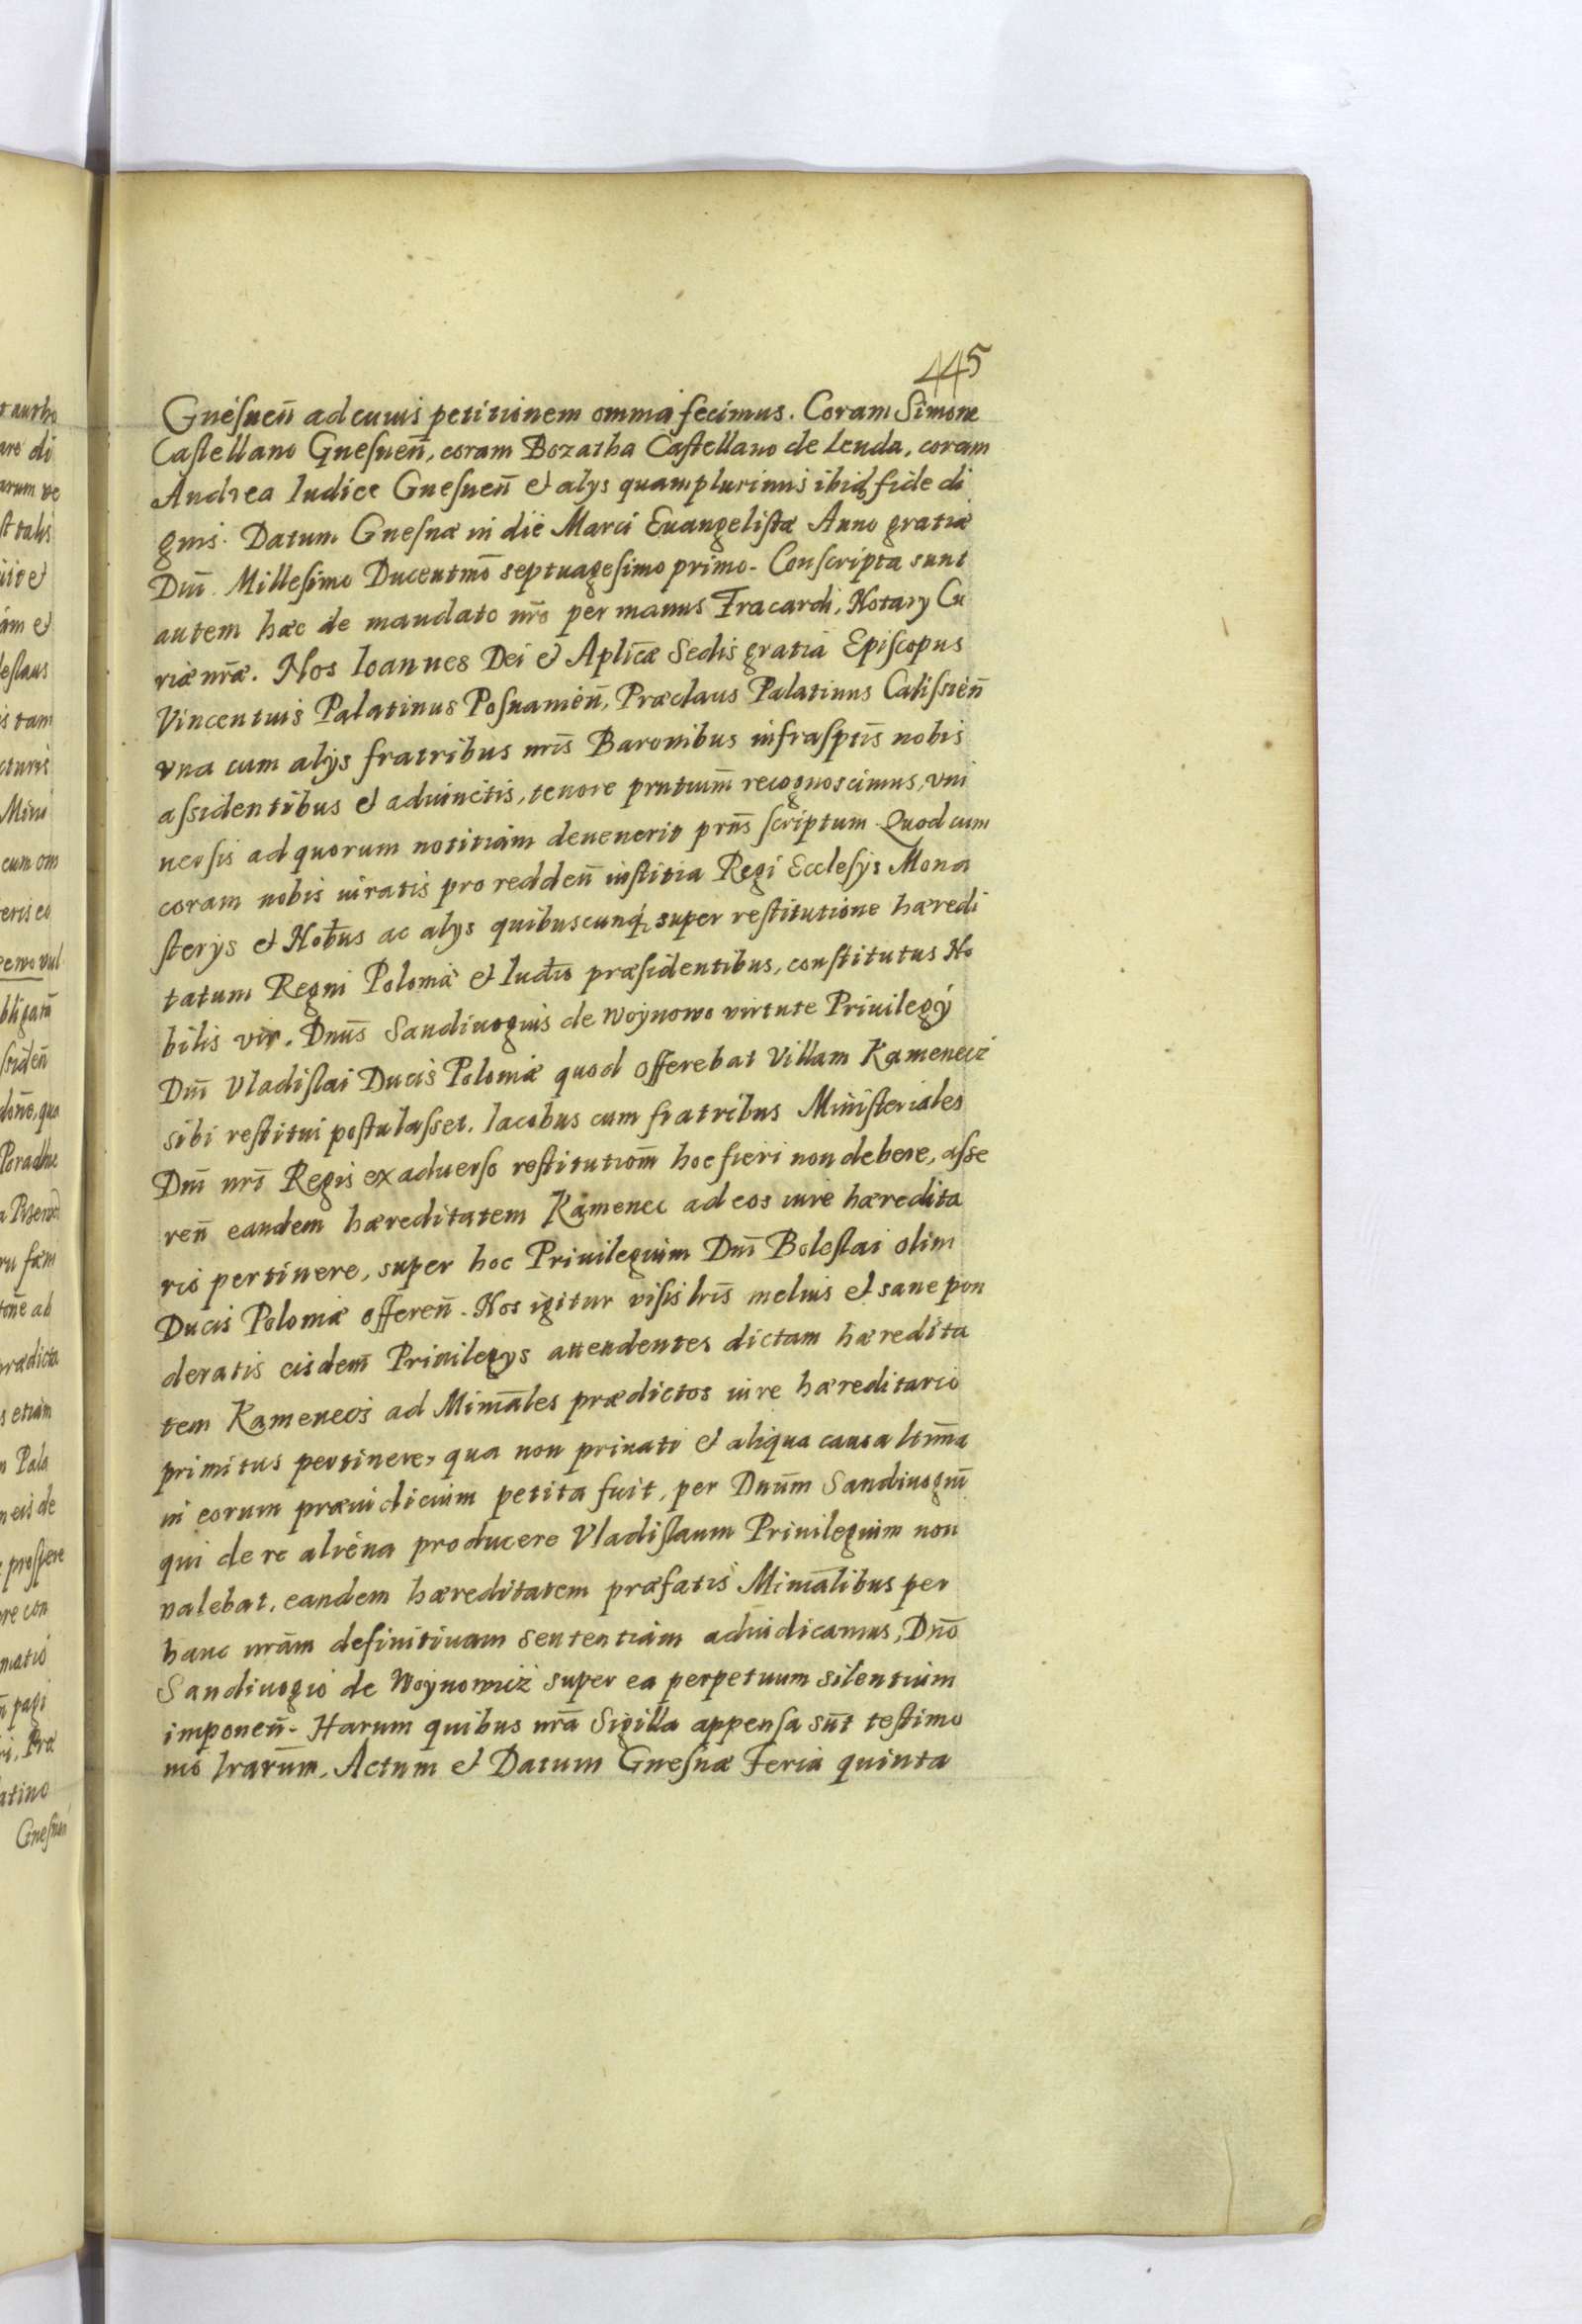 445
Gnesnen̄ ad cuius petitionem omnia fecimus. Coram Simone
Castellano Gnesnen̄, coram Bozatha Castellano de Lenda, coram
Andrea Iudice Gnesnen̄ et alys quamplurimis ibid fide di
gnis. Datum Gnesnæ in die Marci Euangelistæ Anno gratiæ
Dnī Millesimo Ducentmō septuagesimo primo. Conscripta sunt
autem hæc de mandato nrō per manus Fracardi, Notary Cu
riæ nrǣ. Nos Ioannes Dei et Aplicæ Sedis gratia Episcopus
Vincentius Palatinus Posnanien̄, Præclaus Palatinus Calissien̄
vna cum alys fratribus nrīs Baronibus infrasptīs nobis
assidentibus et adiunctis, tenore pntium̄ recognoscimus, vni
uersis ad quorum notitiam deuenerit prn̄s scriptum. Quod cum
coram nobis iuratis pro redden̄ iustitia Regi Ecclesys Mona
sterys et Nob̄us ac alys quibuscunq́ super restitutione hæredi
tatum Regni Poloniæ et Iud̄io præsidentibus, constitutus No
bilis vir. Dnūs Sandiuogius de Woynowo virtute Priuilegy
Dnī Vladislai Ducis Poloniæ quod offerebat Villam Kameneci
sibi restitui postulasset. Iacobus cum fratribus Ministeriales
Dnī nrī Regis ex aduerso restitutiom̄ hoc fieri non debere, asse
ren̄ eandem hæreditatem Kamenec ad eos iure hæredita
rio pertinere, super hoc Priuilegium Dnī Boleslai olim
Ducis Poloniæ offeren̄. Nos igitur visis lrīs melius et sane pon
deratis eisdem̄ Priuilegys attendentes dictam hæredita
tem Kameneci ad Mināles prædictos iure hæreditario
primitus pertinere, qua non priuati et aliqua causa ltīma
in eorum præiudicium petita fuit, per Dnūm Sandiuogiū
qui de re aliena producere Vladislaum Priuilegium non
valebat, eandem hæreditatem præfatis Minālibus per
hanc nrām definitiuam sententiam adiudicamus, Dnō
Sandiuogio de Woynowicz super ea perpetuum silentium
imponen̄. Harum quibus nrā Sigilla appensa sūt testimo
nio lrarūm. Actum et Datum Gnesnæ Feria quinta